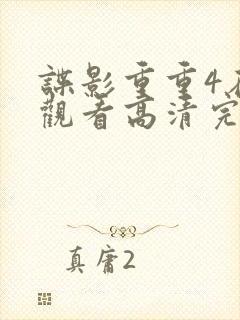 諜影重重4
觀看高清完
真庸2